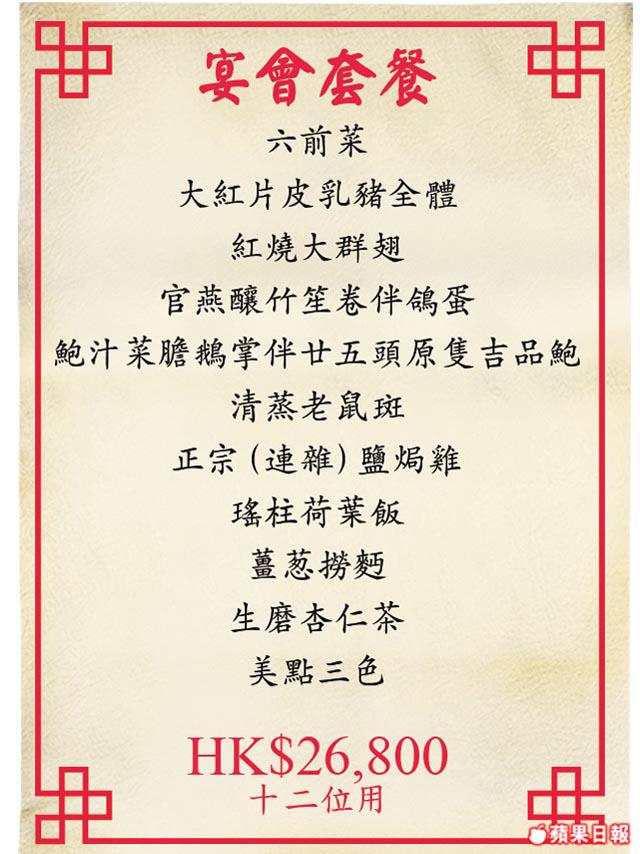 宴會套餐
六前菜
大紅片皮乳豬全體
紅燒大群翅
官燕釀竹笙卷伴鴿蛋
鮑汁菜膽鵝掌伴廿五頭原隻吉品鮑
清蒸老鼠斑
正宗(連雜)鹽焗雞
瑤柱荷葉飯
薑葱撈麪
生磨杏仁茶
美點三色
HK$26,800
十二位用
蘋果日報